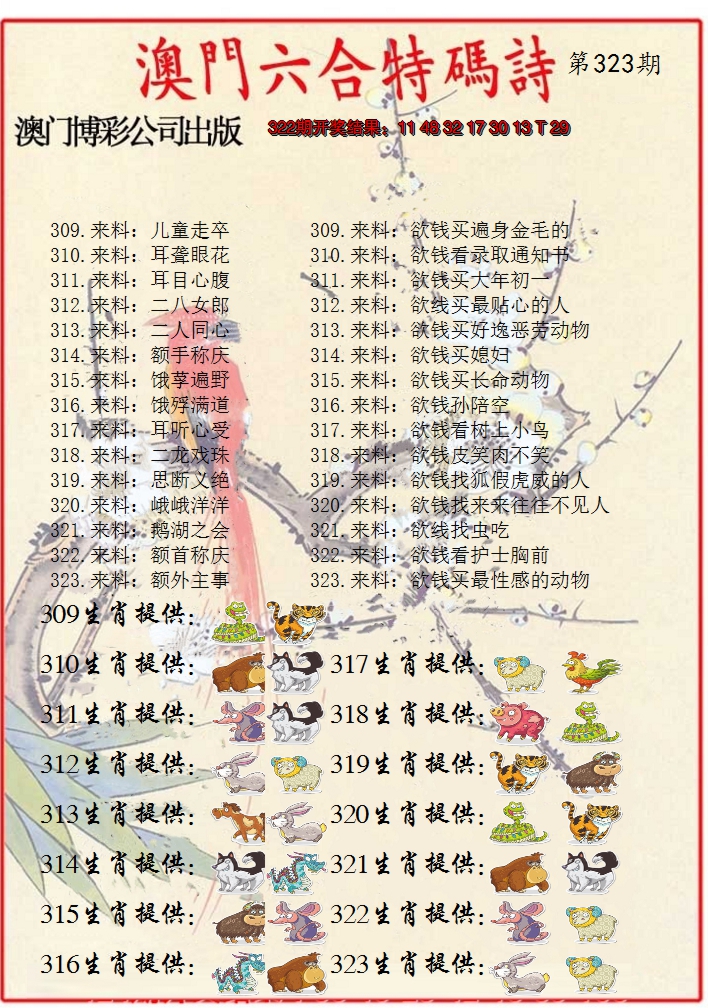 澳門六合特碼詩 第323期
澳门博彩公司出版 322期开奖结果：11 48 32 17 30 13 T 29
309.来料：儿童走卒 309.来料：欲钱买遍身金毛的
310.来料：耳聋眼花 310.来料：欲钱看录取通知书
311.来料：耳目心腹 311.来料：欲钱买大年初一
312.来料：二八女郎 312.来料：欲线买最贴心的人
313.来料：二人同心 313.来料：欲钱买好逸恶劳动物
314.来料：额手称庆 314.来料：欲钱买媳妇
315.来料：饿莩遍野 315.来料：欲钱买长命动物
316.来料：饿殍满道 316.来料：欲钱孙陪空
317.来料：耳听心受 317.来料：欲钱看树上小鸟
318.来料：二龙戏珠 318.来料：欲钱皮笑肉不笑
319.来料：思断义绝 319.来料：欲钱找狐假虎威的人
320.来料：峨峨洋洋 320.来料：欲钱找来来往往不见人
321.来料：鹅湖之会 321.来料：欲线找虫吃
322.来料：额首称庆 322.来料：欲钱看护士胸前
323.来料：额外主事 323.来料：欲钱买最性感的动物
309生肖提供：
310生肖提供： 317生肖提供：
311生肖提供： 318生肖提供：
312生肖提供： 319生肖提供：
313生肖提供： 320生肖提供：
314生肖提供： 321生肖提供：
315生肖提供： 322生肖提供：
316生肖提供： 323生肖提供：